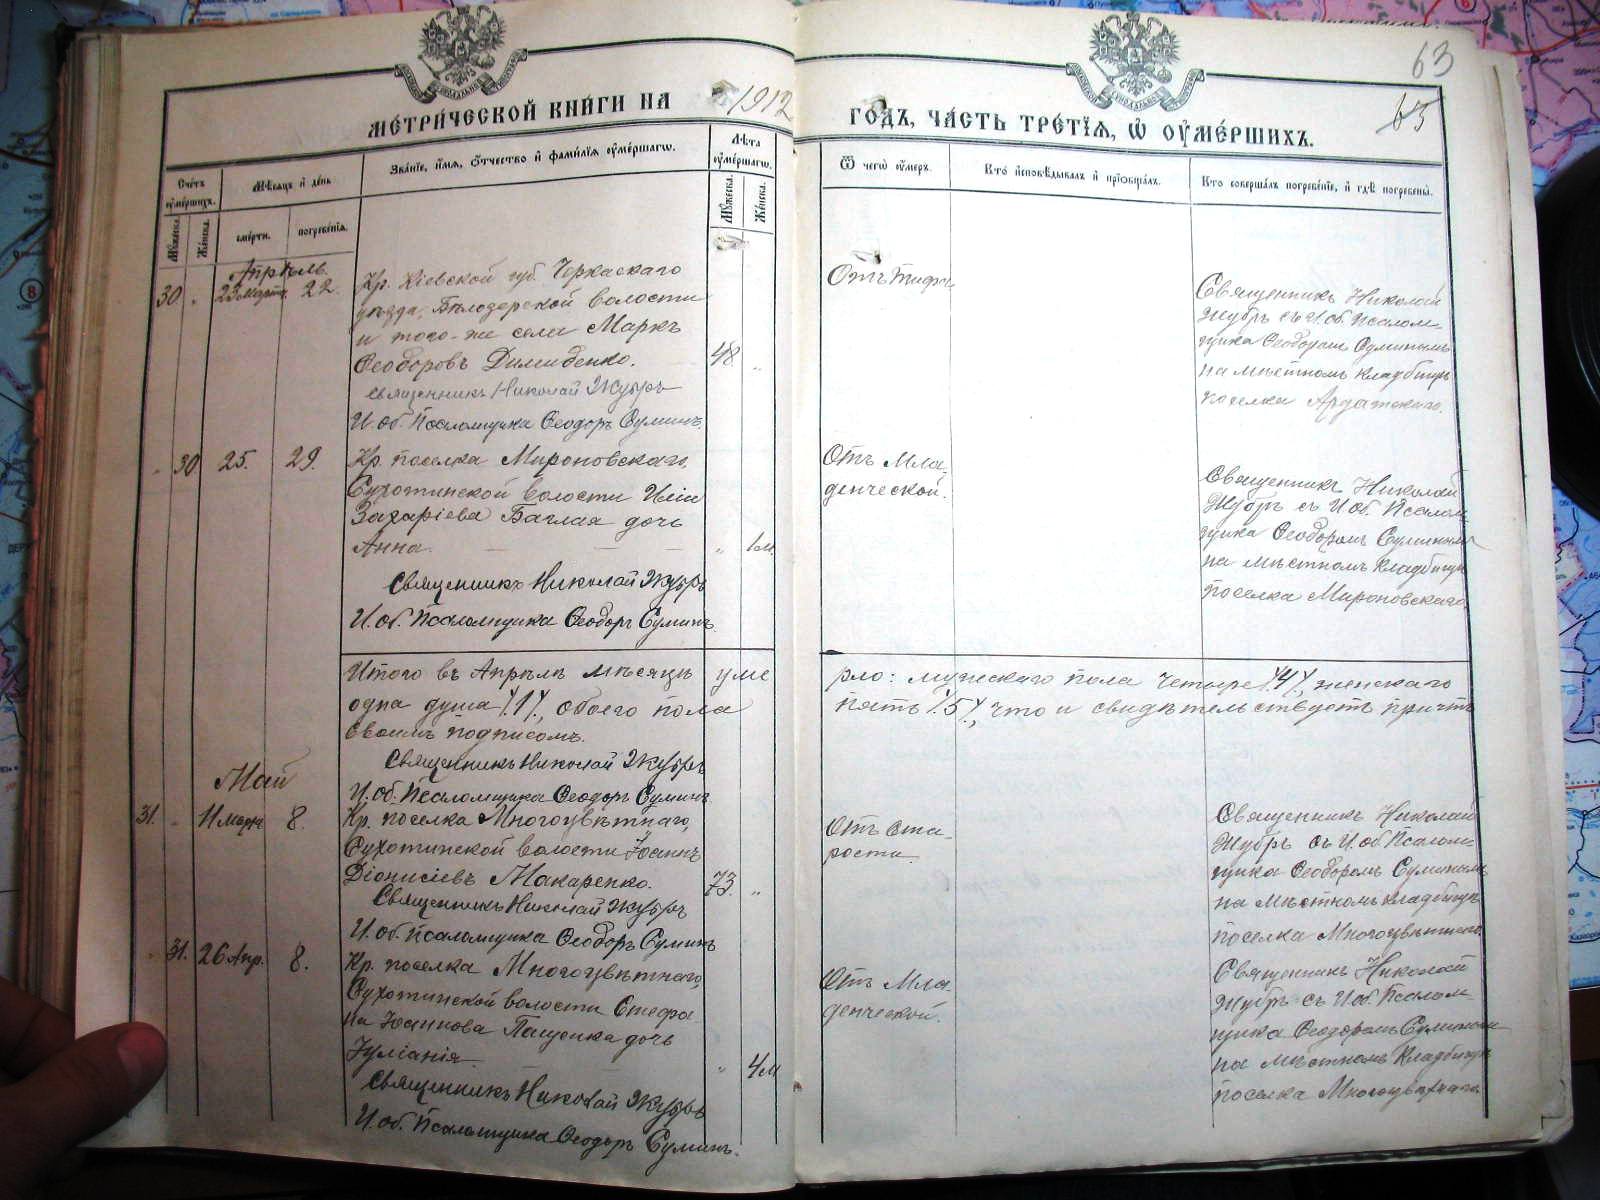 МЕТРИЧЕСКОЙ КНИГИ НА 1912
ГОДЪ, ЧАСТЬ ТРЕТІЯ, Ѡ ОУМЕРШИХЪ.
63
65
Счетъ оумершихъ.
Мѣсяцъ и день
Званіе, имя, отчество и фамилія оумершагѡ.
Лѣта оумершагѡ.
Мужеска.
Женска.
смерти.
погребенія.
Мужеска.
Женска.
Ѿ чегѡ оумеръ.
Кто исповѣдывалъ и пріобщалъ.
Кто совершалъ погребеніе, и гдѣ погребены.
Апрѣль.
30 „ 23 Марта. 22.
Кр. Кіевской губ. Черкаскаго
уѣзда, Бѣлозерской волости
и того-же села Маркъ
Ѳеодоровъ Димиденко. 48 „
Священникъ Николай Жубръ
И. об. Псаломщика Ѳеодоръ Суминъ.
Отъ тифа
Священникъ Николай
Жубръ съ И. об. Псалом-
щика Ѳеодоромъ Суминымъ
на мѣстномъ кладбищѣ
поселка Ардатскаго.
„ 30 25. 29.
Кр. поселка Мироновскаго,
Сухотинской волости Иліи
Захаріева Баглая дочь
Анна. „ 1 м
Священникъ Николай Жубръ
И. об. Псаломщика Ѳеодоръ Суминъ.
Отъ Мла-
денческой.
Священникъ Николай
Жубръ съ И об. Псалом-
щика Ѳеодоромъ Суминымъ
на мѣстномъ кладбищѣ
поселка Мироновскаго
Итого въ Апрѣлѣ мѣсяцѣ уме
рло: мужескаго пола четыре /4/, женскаго
одна душа /1/, обоего пола
пять /5/, что и свидѣтельствуетъ причтъ
своимъ подписомъ.
Священникъ Николай Жубръ
И. об. Псаломщика Ѳеодоръ Суминъ.
Май
31. „ 11 марта 8.
Кр. поселка Многоцвѣтнаго,
Сухотинской волости Іоаннъ
Діонисіевъ Макаренко. 73. „
Священникъ Николай Жубръ
И. об. Псаломщика Ѳеодоръ Суминъ
Отъ ста-
рости
Священникъ Николай
Жубръ съ И. об Псалом-
щика Ѳеодоромъ Суминымъ
на мѣстномъ кладбищѣ
поселка Многоцвѣтнаго
„ 31. 26 Апр. 8.
Кр. поселка Многоцвѣтнаго,
Сухотинской волости Стефа-
на Іоаннова Пащенка дочь
Іуліанія „ 4 м
Священникъ Николай Жубръ
И. об. Псаломщика Ѳеодоръ Суминъ.
Отъ Мла-
денческой.
Священникъ Николай
Жубръ съ И об. Псалом-
щика Ѳеодоромъ Суминымъ
на мѣстномъ кладбищѣ
поселка Многоцвѣтнаго.